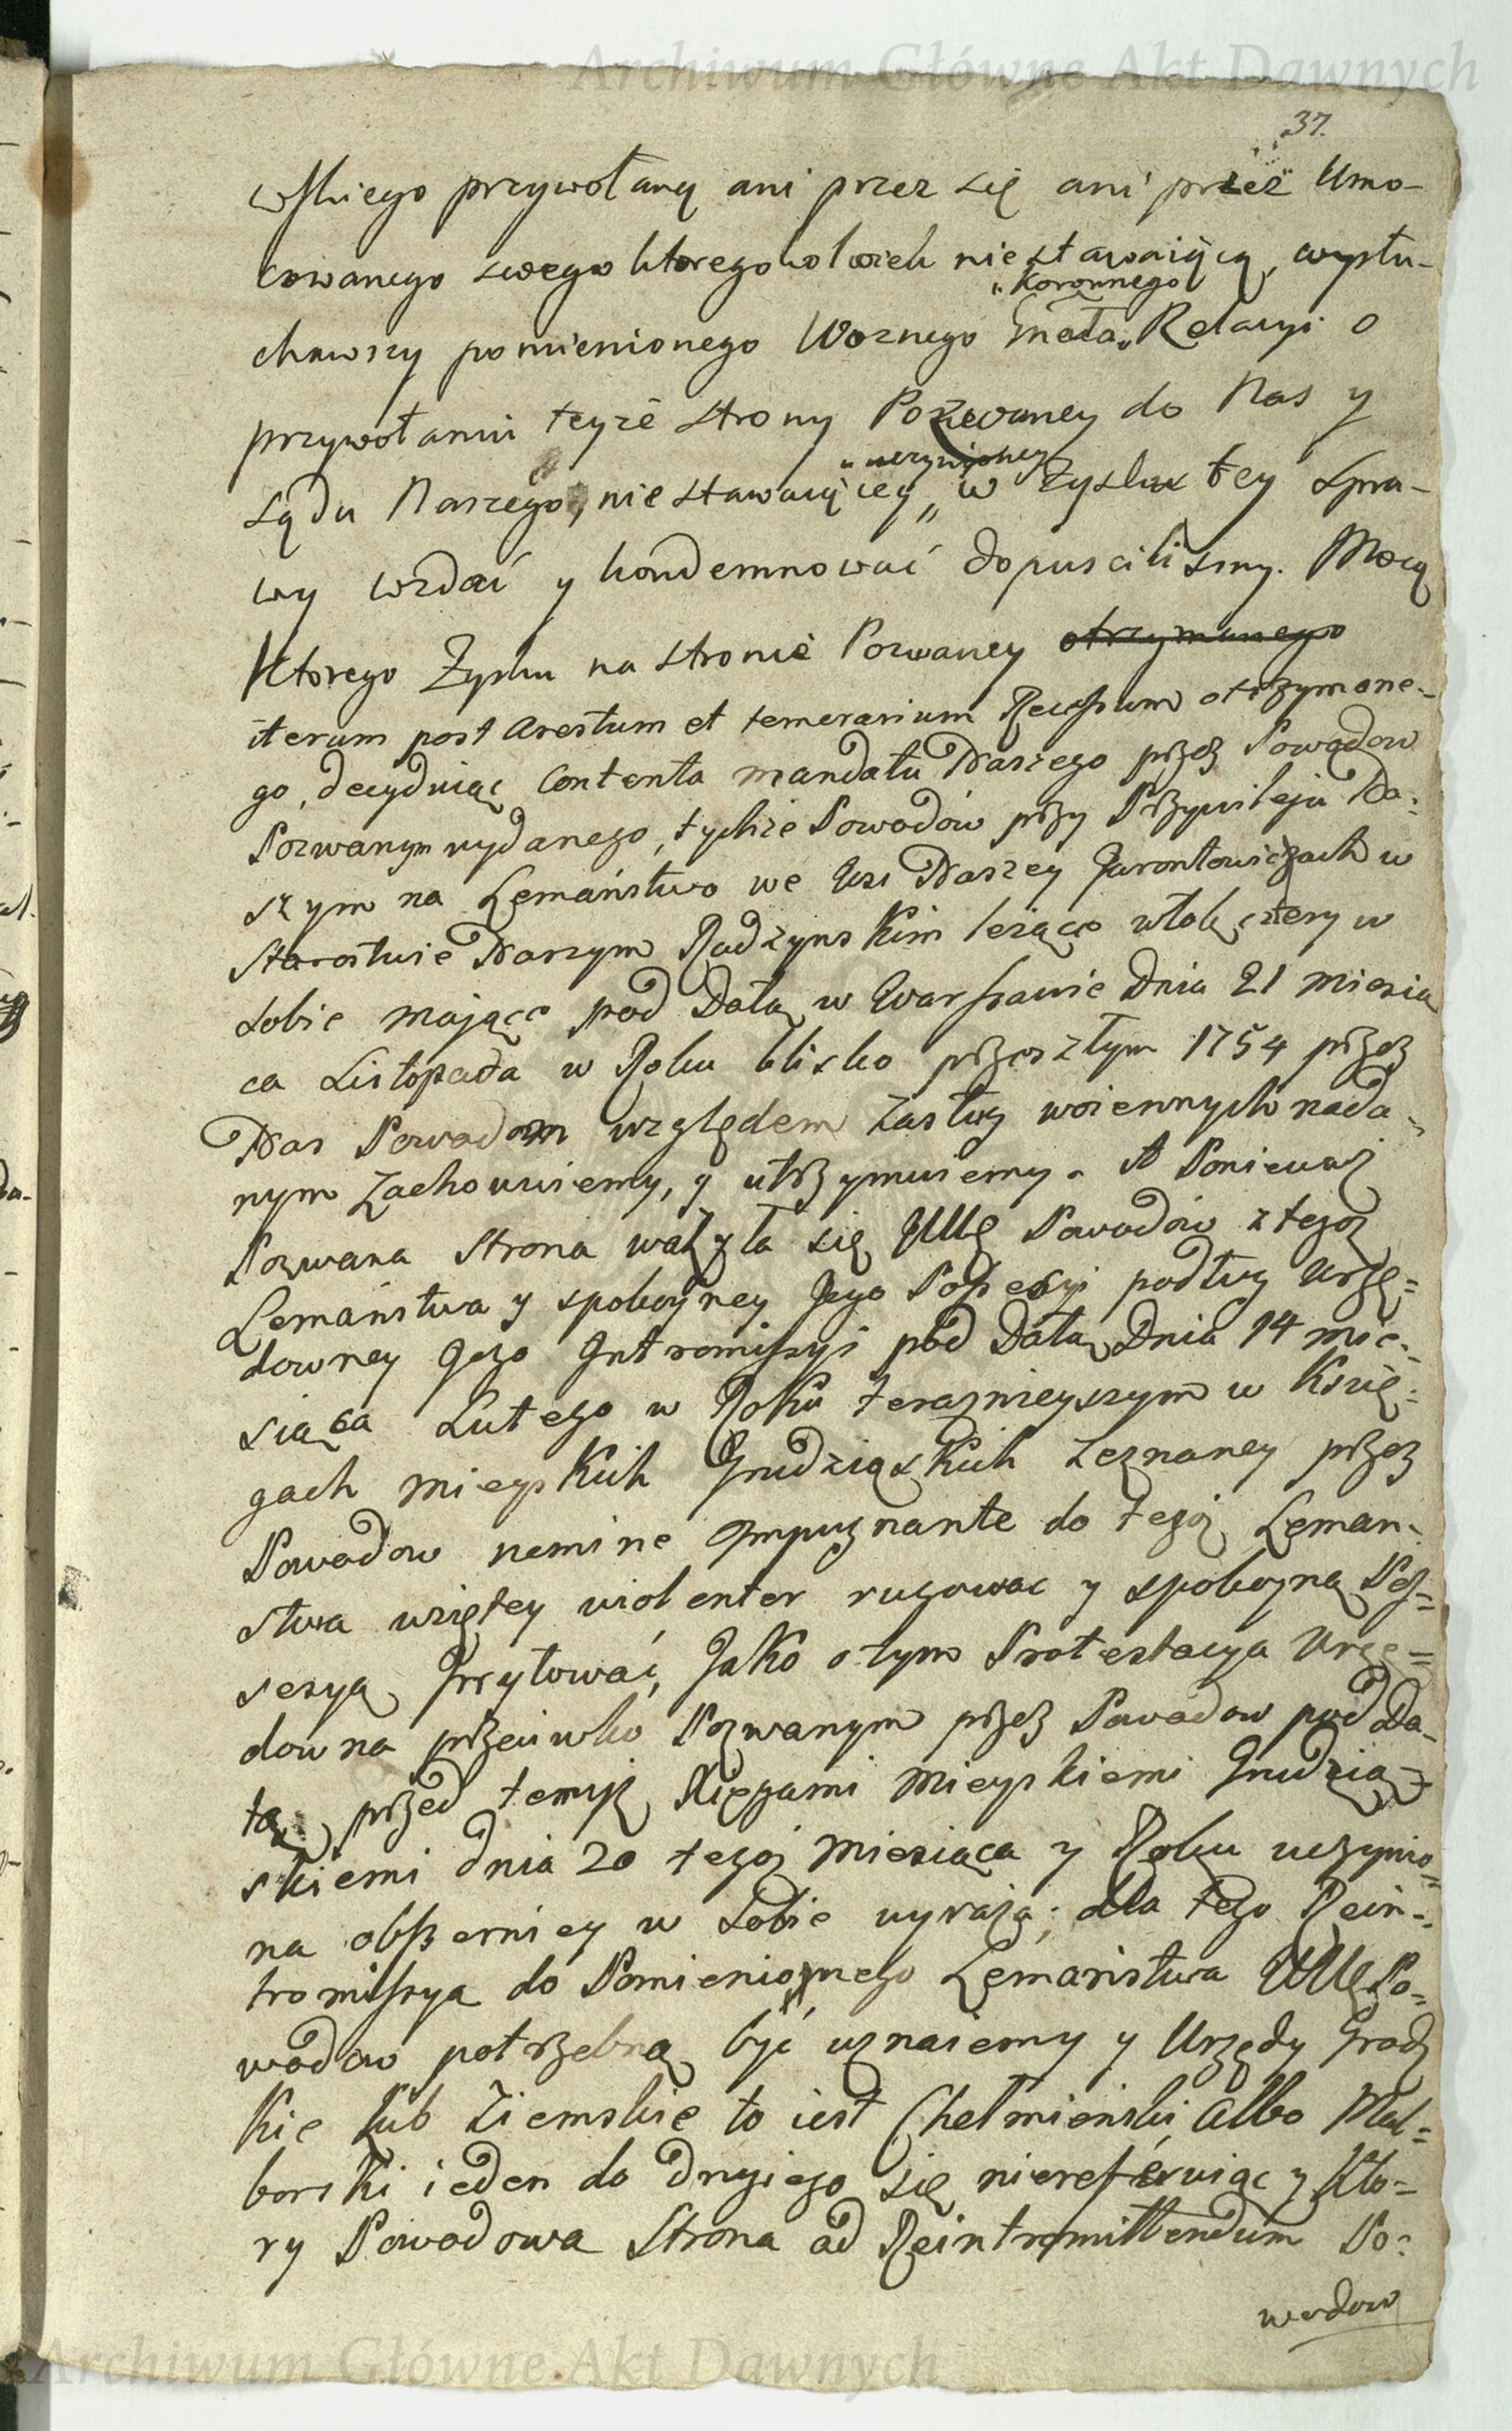 Archiwum Główne Akt Dawnych
37.
wskiego przywołany ani przez się ani przez Umo-
cowanego swego ktoregokolwiek niestawaiący, wysłu-
„Koronnego
chawszy pomienionego Woznego Gnała „ Relacyi o
przywołaniu teyże strony Pozwaney do Nas y
„uczynioney
sądu Naszego, niestawaiącey „ w Zysku tey spra-
wy wzdać y kondemnować dopuscilismy. Mocą
Ktorego Zysku na stronie Pozwaney otrzymanego
iterum post Arestum et temerarium Recessum otrzymane-
go, decyduiąc Contenta mandatu Naszego przez Powodow
Pozwanym wydanego, tychże Powodów przy Przywileju Na-
szym na Lemaństwo we Wsi Naszey Gwrontowiczach w
Starostwie Naszym Radzynskim leżące włok cztery w
sobie mające pod Datą w Warszawie Dnia 21 Miesią
ca Listopada w Roku blisko przeszłym 1754 przez
Nas Powodom względem zasług woiennych nada-
nym Zachowuiemy, y utrzymuiemy. A Ponieważ
Pozwana Strona ważyła się UUę Powodów z tegoż
Lemaństwa y spokoyney Jego Possesyi podług Urzę-
downey Jego Intromissyi pod Datą Dnia 14 mie-
siąca Lutego w Roku teraznieyszym w Księ-
gach mieyskich Grudziąskich zeznaney przez
Powodow nemine Impugnante do tegoż Leman-
stwa wziętey violenter rugować y spokoyną Pos-
sesyą Irrytować, Jako o tym Protestacya Urzę-
downa przeciwko Pozwanym przez Powodow pod Da-
tą przed temiż Xięgami mieyskiemi Grudzią-
skiemi dnia 20 tegoż Miesiąca y Roku uczynio-
na obszerniey w sobie wyraża; dla tego Rein-
tromissya do Pomienionego Lemaństwa UUę Po-
wodow potrzebną być uznaiemy y Urzędy Grodz
Kie lub Ziemskie to iest Chełmieński albo Mal-
borski ieden do drugiego się niereferuiąc y Kto-
ry Powodowa Strona ad Reintromittendum Po-
wodow
Archiwum Główne Akt Dawnych